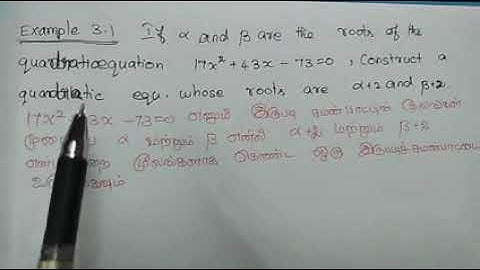 Example 3.1 If α and β are the roots of the
quadratic equation 17x² + 43x - 73 = 0, Construct a
quadratic equ. whose roots are α+2 and β+2.
17x² 43x - 73 = 0 எனும் இருபடி சமன்பாட்டின் மூலங்கள்
α மற்றும் β எனில் α+2 மற்றும் β+2
மூலங்களாக கொண்ட ஒரு இருபடிச் சமன்பாட்டை